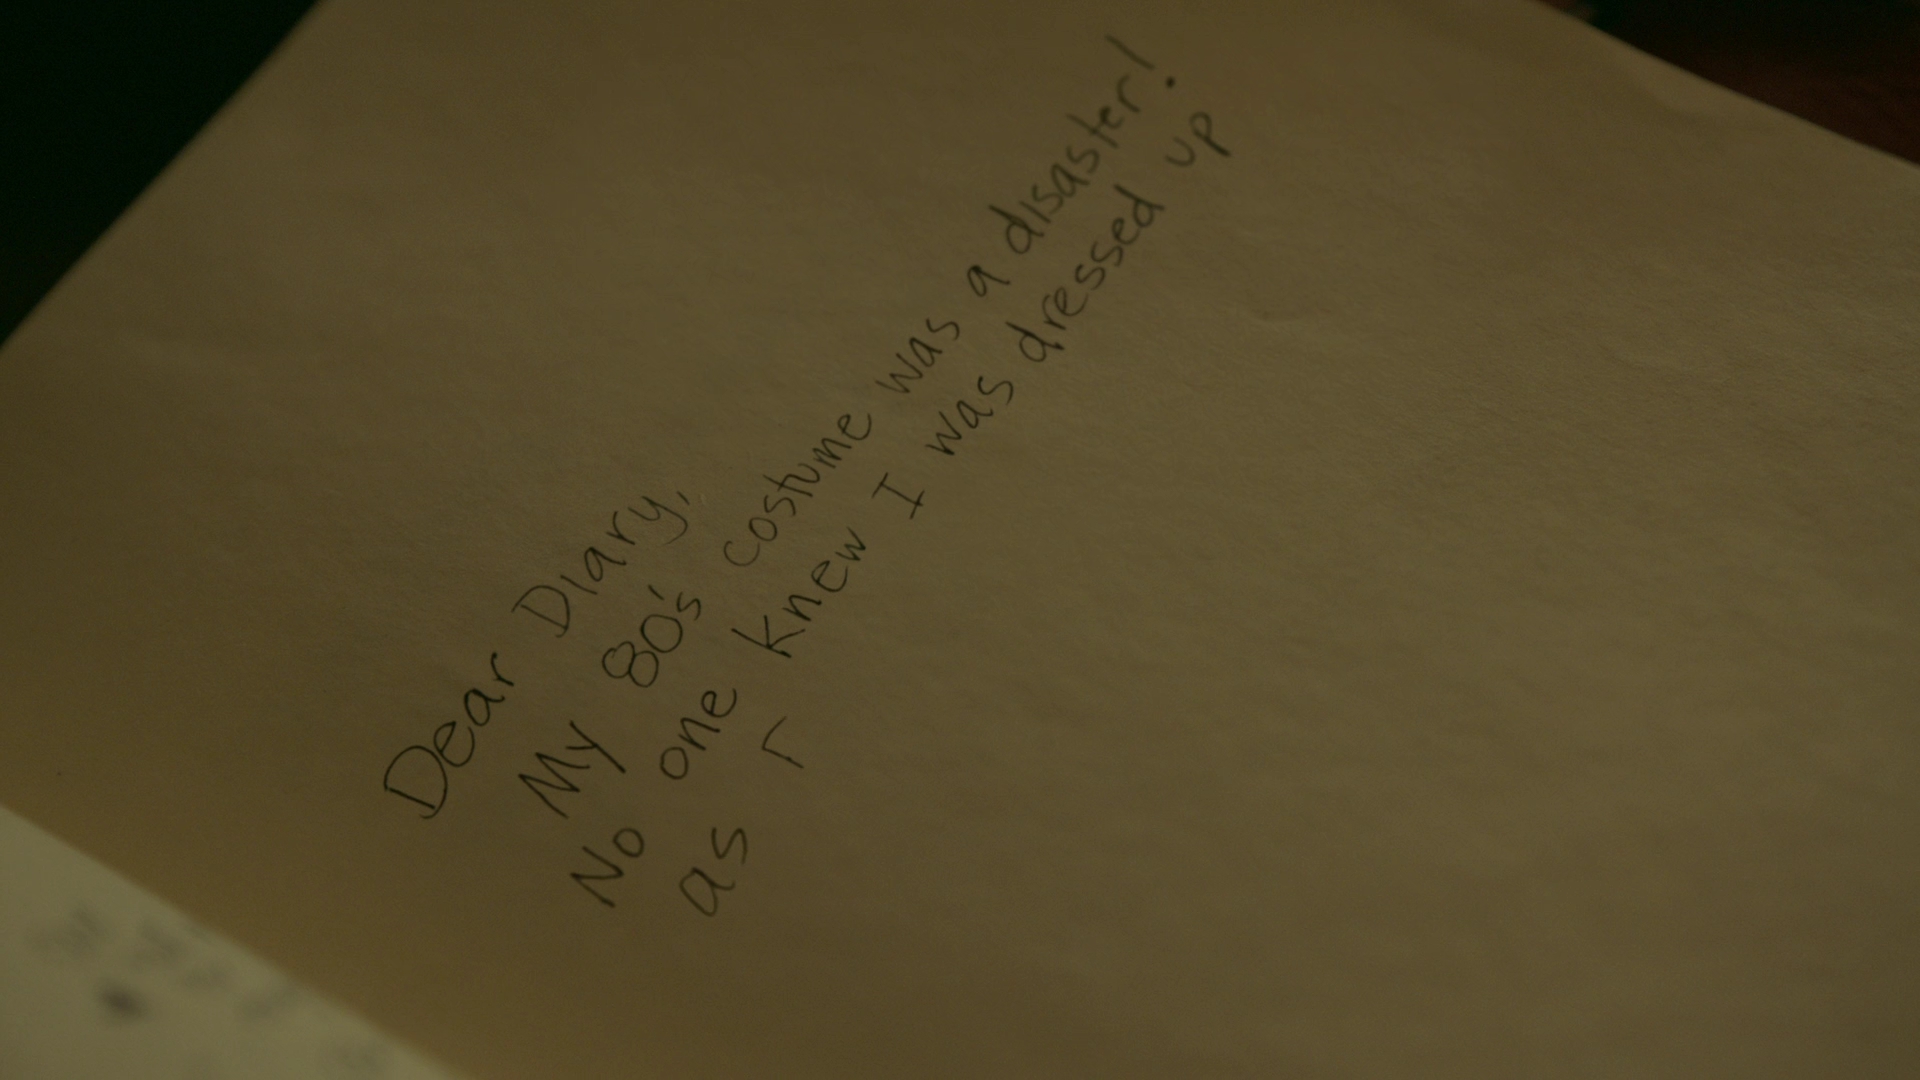 Dear Diary,
My 80's costume was a disaster!
No one knew I was dressed up
as